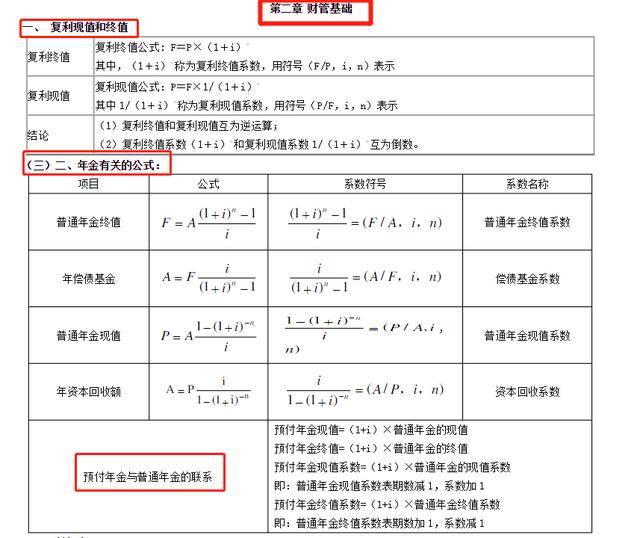 第二章 财管基础
一、 复利现值和终值
复利终值
复利终值公式：F＝P×（1+i）ⁿ
其中，（1+i）ⁿ称为复利终值系数，用符号（F/P，i，n）表示
复利现值
复利现值公式：P＝F×1/（1+i）ⁿ
其中 1/（1+i）ⁿ称为复利现值系数，用符号（P/F，i，n）表示
结论
（1）复利终值和复利现值互为逆运算；
（2）复利终值系数（1+i）ⁿ和复利现值系数 1/（1+i）ⁿ互为倒数。
（三）二、年金有关的公式：
项目 公式 系数符号 系数名称
普通年金终值 F = A((1+i)ⁿ−1)/i ((1+i)ⁿ−1)/i = (F / A，i，n) 普通年金终值系数
年偿债基金 A = F i/((1+i)ⁿ−1) i/((1+i)ⁿ−1) = (A / F，i，n) 偿债基金系数
普通年金现值 P = A(1−(1+i)⁻ⁿ)/i (1−(1+i)⁻ⁿ)/i = (P / A,i，n) 普通年金现值系数
年资本回收额 A=P i/(1−(1+i)⁻ⁿ) i/(1−(1+i)⁻ⁿ) = (A / P，i，n) 资本回收系数
预付年金与普通年金的联系
预付年金现值=（1+i）×普通年金的现值
预付年金终值=（1+i）×普通年金的终值
预付年金现值系数=（1+i）×普通年金的现值系数
即：普通年金现值系数表期数减 1，系数加 1
预付年金终值系数=（1+i）×普通年金终值系数
即：普通年金终值系数表期数加 1，系数减 1